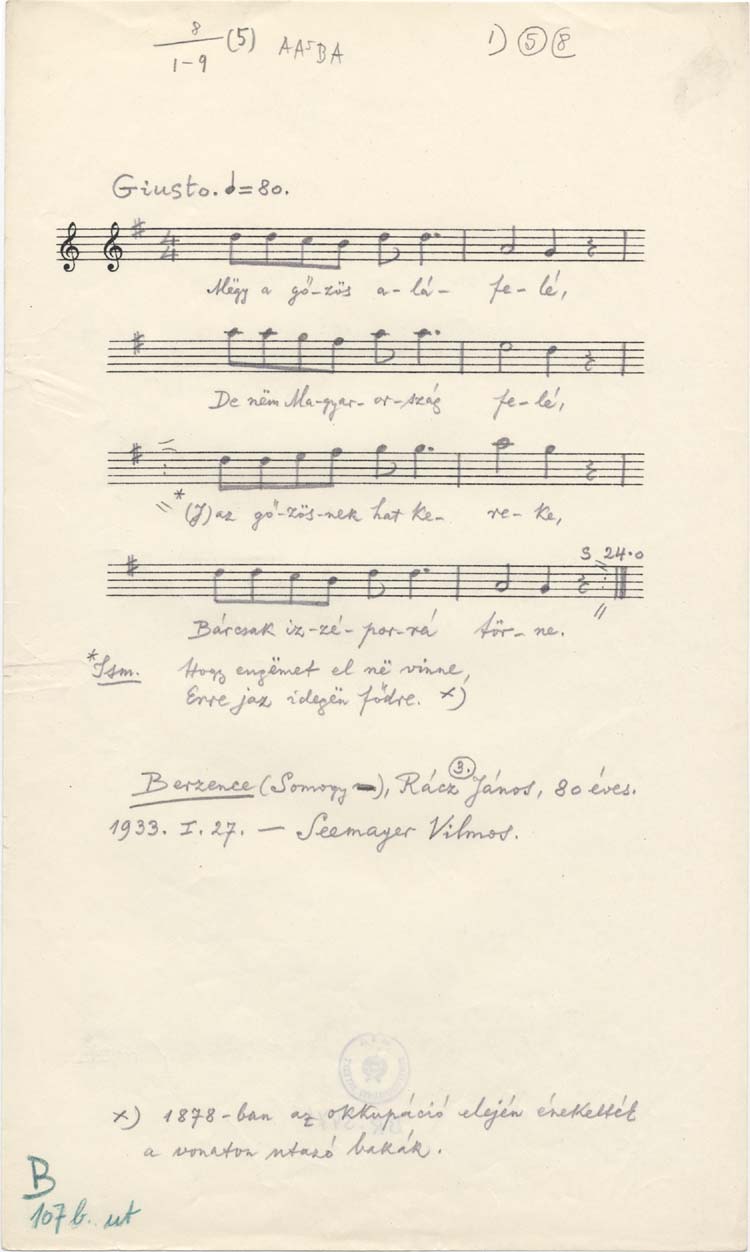 8
1-9 (5) AA⁵BA 1) ⑤ ⑧
Giusto. 𝅗𝅥=80.
4
4
Mëgy a gő-zös a-lá- fe-lé,
De nëm Ma-gyar-or-szág fe-lé,
* (J)az gő-zös-nek hat ke- re-ke,
S 24.0
Bárcsak iz-zé-por-rá tör-ne.
* Ism. Hogy engëmet el në vinne,
Erre jaz idegën fődre. x)
3.
Berzence (Somogy), Rácz János, 80 éves.
1933. I. 27. — Seemayer Vilmos.
x) 1878-ban az okkupáció elején énekelték
a vonaton utazó bakák.
B
107 b. ut